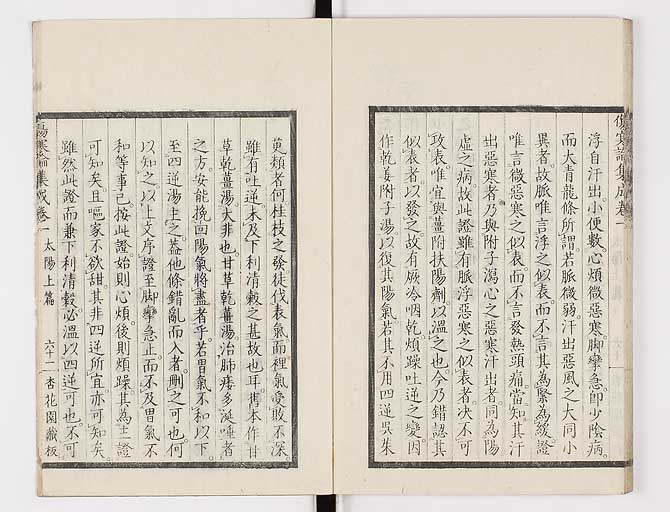 浮自汗出。小便數。心煩微惡寒。脚攣急。即少陰病。
而大青龍條所謂若脈微弱。汗出惡風之大同小
異者。故脈唯言浮之似表。而不言其為緊為緩。證
唯言微惡寒之似表。而不言發熱頭痛。當知其汗
出惡寒者。乃與附子瀉心之惡寒汗出者同為陽
虛之病。故此證雖有脈浮惡寒之似表者。决不可
攻表。唯宜與薑附扶陽劑以溫之也。今乃錯認其
似表者以發之。故有厥冷咽乾煩躁吐逆之變。因
作乾姜附子湯。以復其陽氣。若其不用四逆吳朱
萸類者何。桂枝之發。徒伐表氣。而裡氣受敗不深。
雖有吐逆。未及下利清穀之甚故也耳。舊本作甘
草乾薑湯。大非也。甘草乾薑湯。治肺痿多涎唾者
之方。安能挽回陽氣將盡者乎。若胃氣不和以下
至四逆湯主之。葢他條錯亂而入者。刪之可也。何
以知之。以上文序證至脚攣急止。而不及胃氣不
和等事已。按此證始則心煩。後則煩躁。其為主證
可知矣。且嘔家不欲甜。其非四逆所宜。亦可知矣。
雖然此證而兼下利清穀。必溫以四逆可也。不可
傷寒論集成卷一 太陽上篇 六十二 杏花園藏板